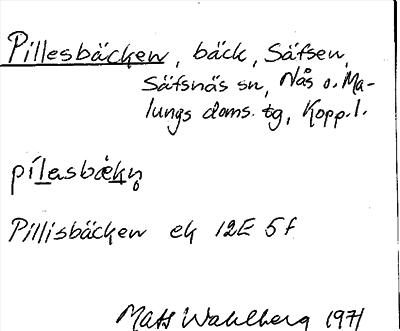 Pillesbäcken, bäck, Säfsen,
Säfsnäs sn, Nås o. Ma-
lungs doms. tg, Kopp. l.
pílasbæ̀kn̥
Pillisbäcken ek 12E 5f
Mats Wahlberg 1971